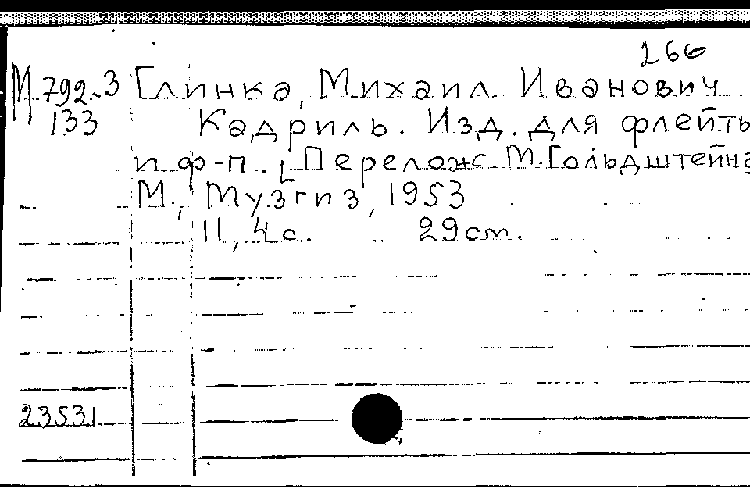 266
М 792-3 Глинка, Михаил Иванович
133 Кадриль. Изд. для флейты
и ф-п. [Перелож. М. Гольдштейна
М., Музгиз, 1953
11, 4 с. 29 cm.
23531